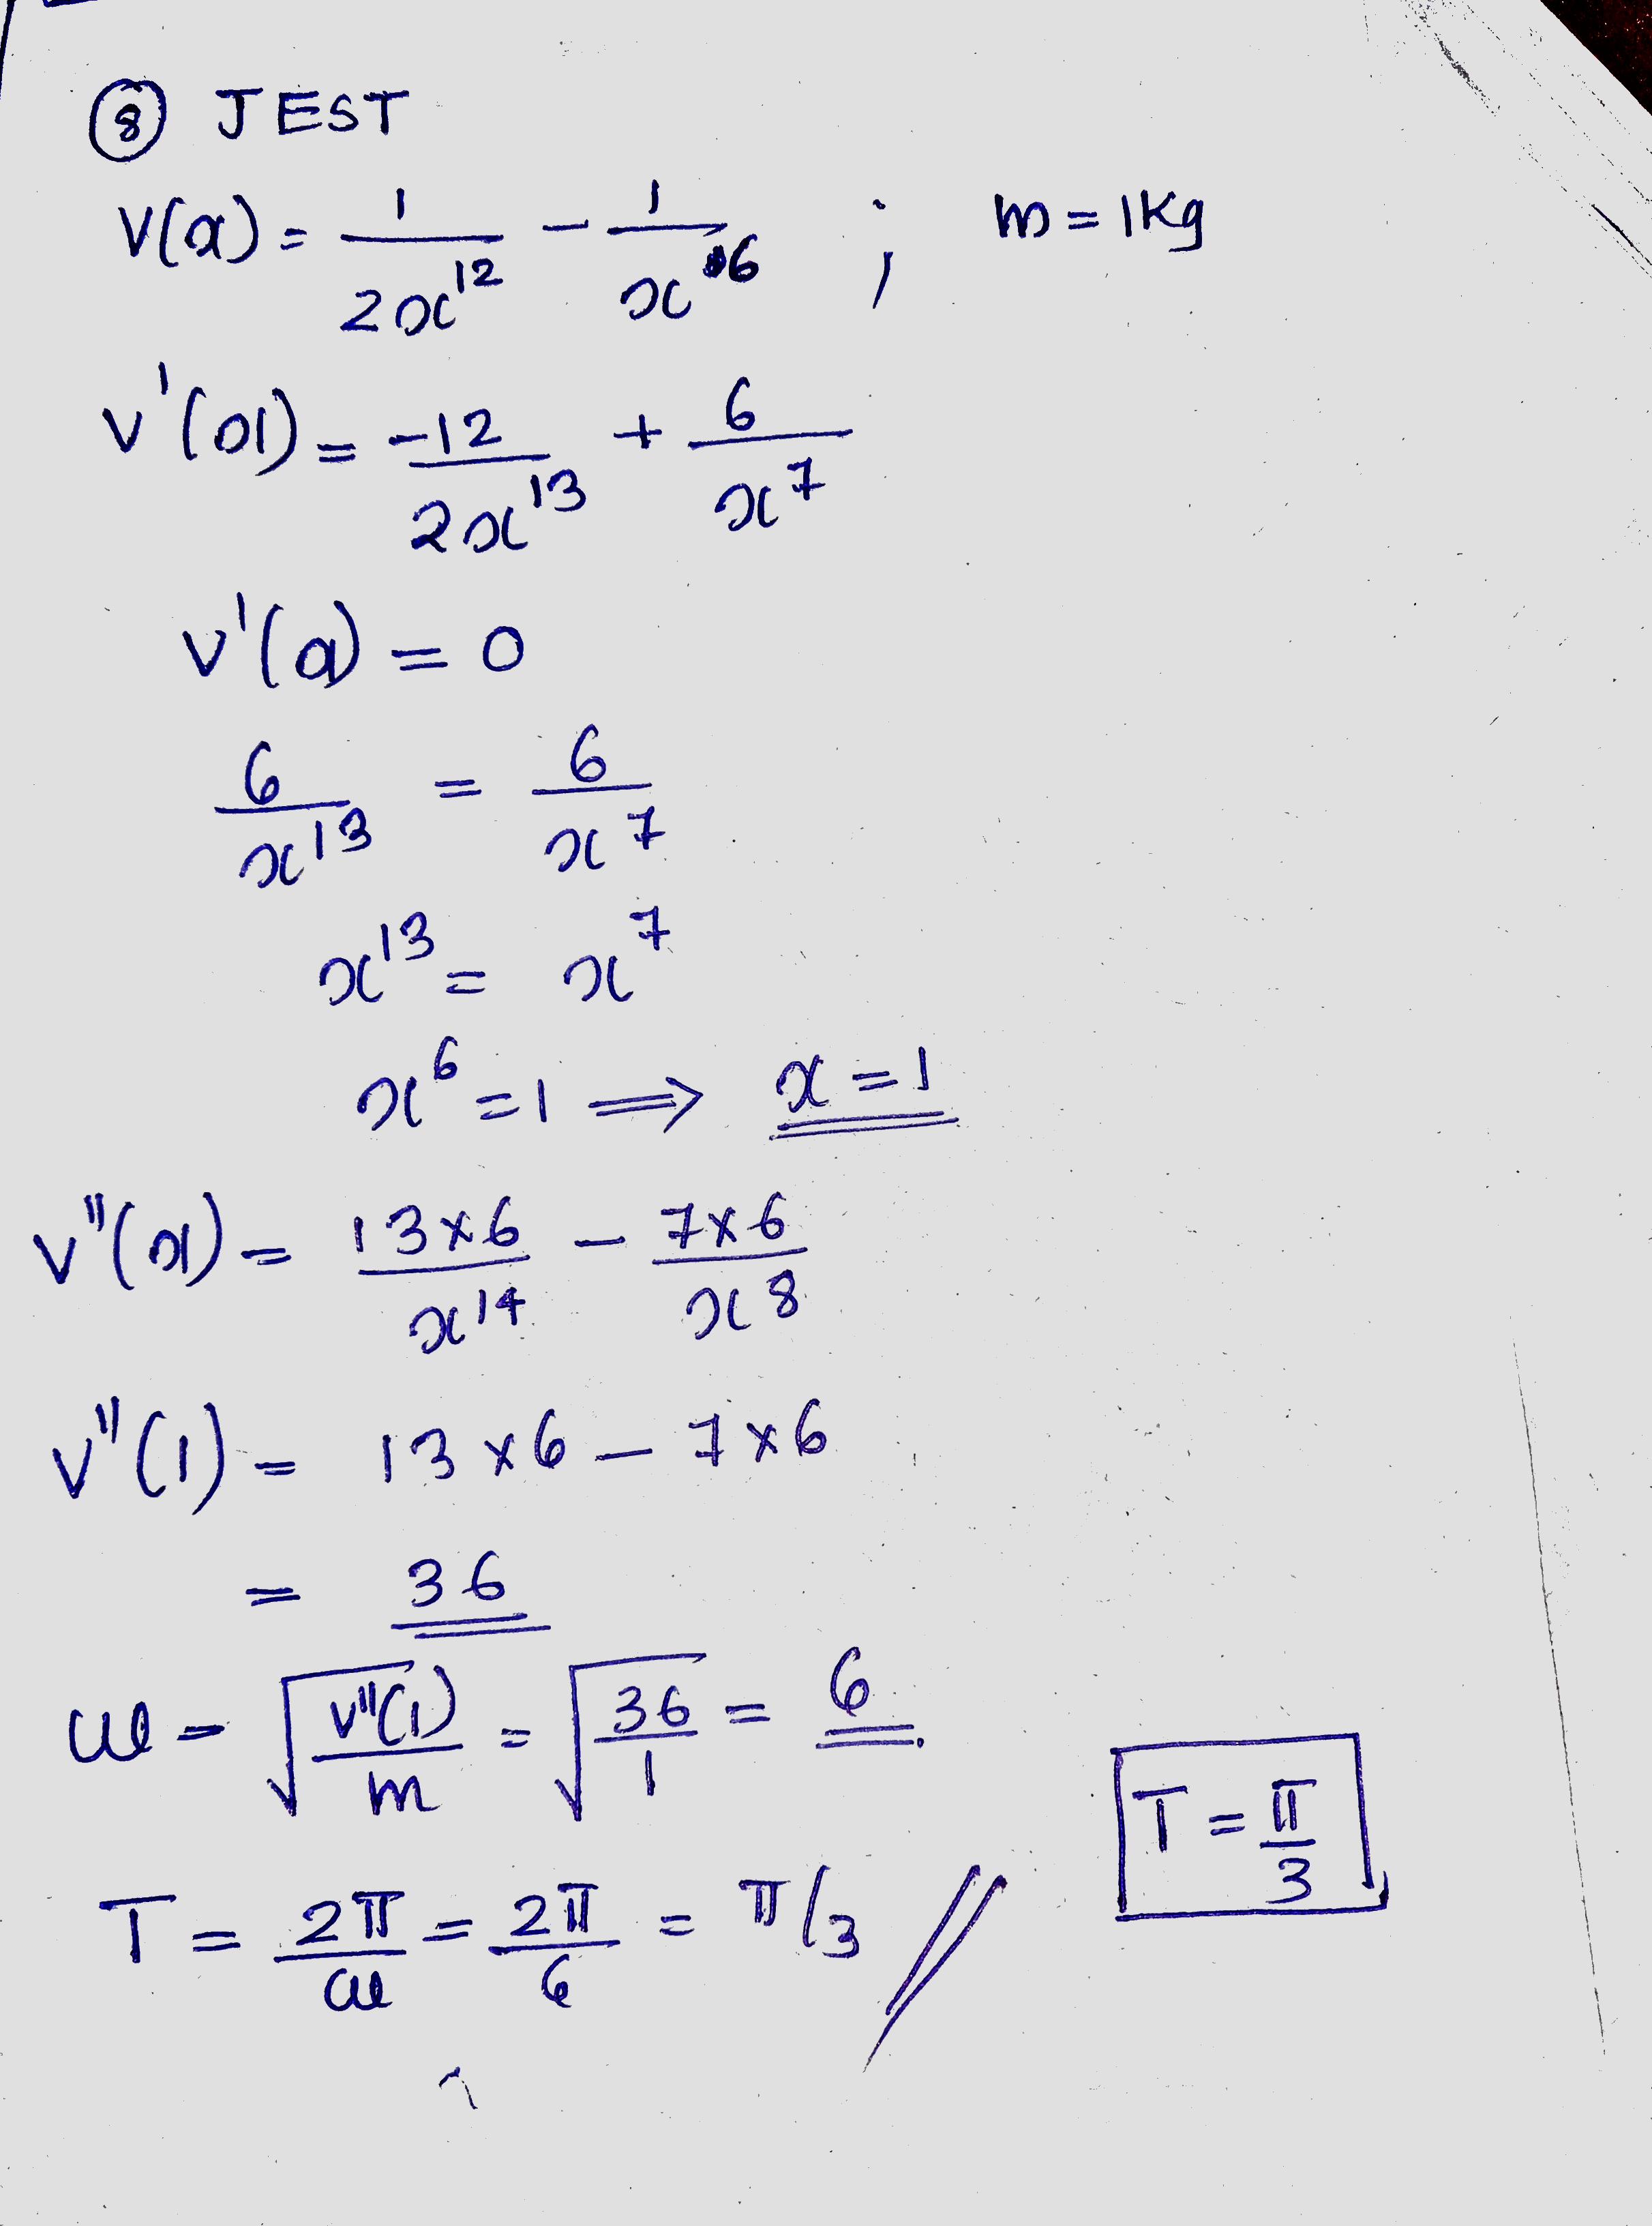 ⑧ JEST
V(x) = 1/2x¹² - 1/x⁶ ; m = 1Kg
V'(x) = -12/2x¹³ + 6/x⁷
V'(x) = 0
6/x¹³ = 6/x⁷
x¹³ = x⁷
x⁶ = 1 ⟹ x = 1
V"(x) = 13×6/x¹⁴ - 7×6/x⁸
V"(1) = 13×6 - 7×6
= 36
ω = √(V"(1)/m) = √(36/1) = 6
T = π/3
T = 2π/ω = 2π/6 = π/3 //